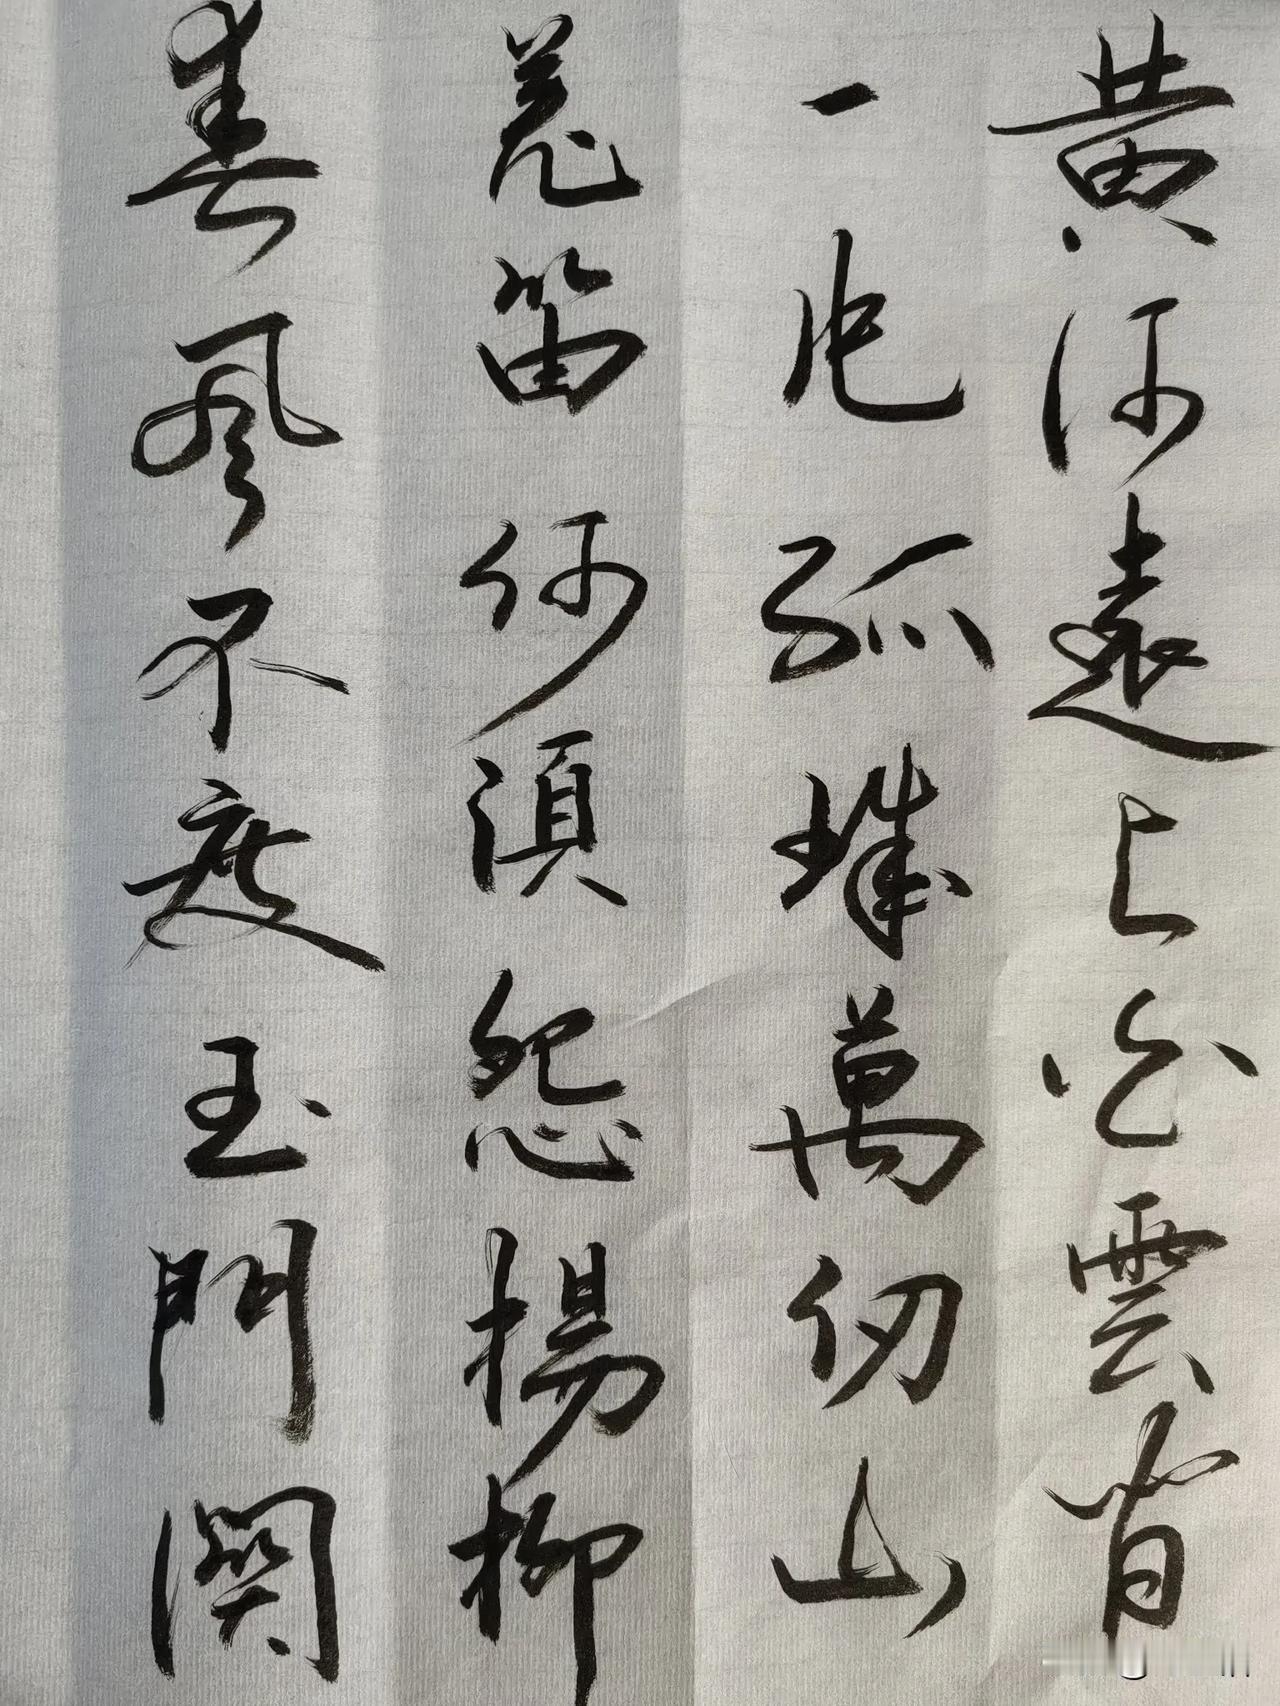 黄河遠上白雲間
一片孤城萬仞山
羌笛何須怨楊柳
春風不度玉門関